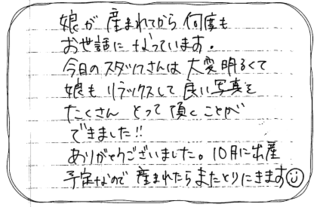 娘が産まれてから何度も
お世話になっています。
今日のスタッフさんは大変明るくて
娘もリラックスして良い写真を
たくさんとって頂くことが
できました!!
ありがとうございました。10月に出産
予定なので産まれたらまたとりにきます☺